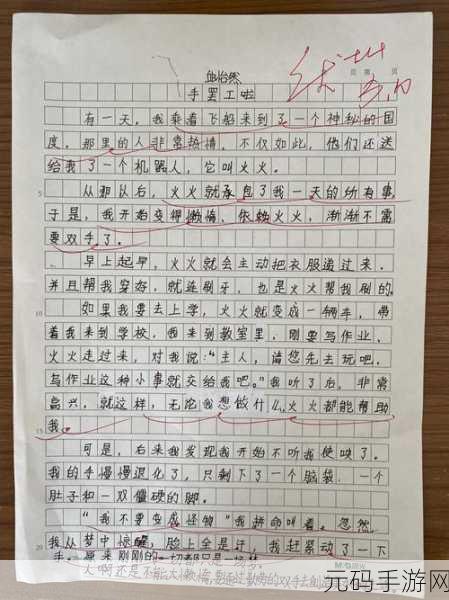 页 第 页
熊怡然
手罢工啦
有一天，我乘着飞船来到了一个神秘的国
度，那里的人非常热情，不仅如此，他们还送
给我了一个机器人，它叫火火。
5
从那以后，火火就承包了我一天的所有事，
于是，我开始变得懒惰，依赖火火，渐渐不需
要双手了。
早上起早，火火就会主动把衣服递过来，
并且帮我穿好，就连刷牙，也是火火帮我刷的。
10
如果我要去上学，火火就变成一辆车，带
着我来到学校，我来到教室里，刚要写作业，
火火走过来，对我说：“主人，请您先去玩吧，
写作业这种小事就交给我吧。”我听了后，非常
高兴，就这样，无论我想做什么，火火都能帮助
15
我。
可是，后来我发现我开始不听我使唤了。
我的手慢慢退化了，只剩下了一个脑袋，一个
肚子和一双僵硬的脚。
“我不要变成怪物”我拼命叫着。忽然，
20
我从梦中惊醒，脸上全是汗，我赶紧动了一下
手。原来刚刚的一切都只是一场梦。
人啊还是不能太懒惰，要通过勤劳的双手去创造
M&G 晨光
元码手游网